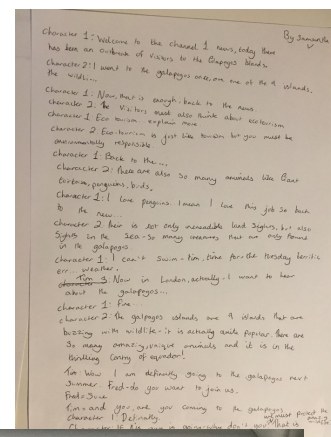 By Samantha
Character 1: Welcome to the channel 1 news, today there
has been an outbreak of visitors to the Galapogos Islands.
Character 2: I went to the galapogos once, on one of the 9 islands.
the wildli...
Character 1: Now, that is enough, back to the news.
character 2: The Visitors must also think about ecotourism
character 1 Eco tourism - explain more
character 2 Eco-tourism is just like tourism but you must be
environmentally responsible
character 1: Back to the...
Character 2: There are also so many animals like Giant
tortoise, penguins, birds,
Character 1: I love penguins. I mean I love this job so back
to the new...
Character 2: their is not only increadible land Sights, but also
Sights in the Sea - So many creatures that are only found
in the galapogos
character 1: I can't Swim - tim, time for the tuesday
err... weather.
Tim 3: Now in London, actually - I want to hear
about the galapogos...
character 1: Fine...
character 2: The galpogos islands are 9 islands that are
buzzing with wildlife - it is actually quite popular. there are
So many amazing, unique animals and it is in the
thrilling contry of eqondor!
Tim: Wow I am definatly going to the galapogos next
Summer. Fred - do you want to join us.
Fred: Sure
Tim: and you, are you coming to the galapogos
character 1: Definatly.
must protect the